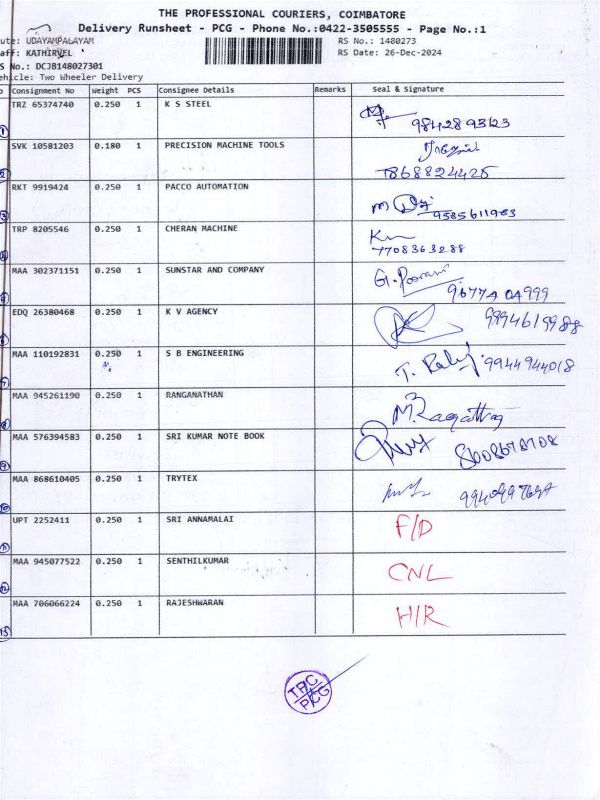 THE PROFESSIONAL COURIERS, COIMBATORE
Delivery Runsheet - PCG - Phone No.:0422-3505555 - Page No.:1
ute: UDAYAMPALAYAM RS No.: 1480273
aff: KATHIRVEL RS Date: 26-Dec-2024
S No.: DCJB148027301
ehicle: Two Wheeler Delivery
o Consignment No Weight PCS Consignee Details Remarks Seal & Signature
TRZ 65374740 0.250 1 K S STEEL
1 9842893123
SVK 10581203 0.180 1 PRECISION MACHINE TOOLS
2 7868824425
RKT 9919424 0.250 1 PACCO AUTOMATION
3 9585611983
TRP 8205546 0.250 1 CHERAN MACHINE
4 7708363288
MAA 302371151 0.250 1 SUNSTAR AND COMPANY
5 9677404999
EDQ 26380468 0.250 1 K V AGENCY
6 9994619988
MAA 110192831 0.250 1 S B ENGINEERING
7 9944944018
MAA 945261190 0.250 1 RANGANATHAN
8
MAA 576394583 0.250 1 SRI KUMAR NOTE BOOK
9
MAA 868610405 0.250 1 TRYTEX
10
UPT 2252411 0.250 1 SRI ANNAMALAI F/D
11
MAA 945077522 0.250 1 SENTHILKUMAR CNL
12
MAA 706066224 0.250 1 RAJESHWARAN H/R
13
TPC
PCG